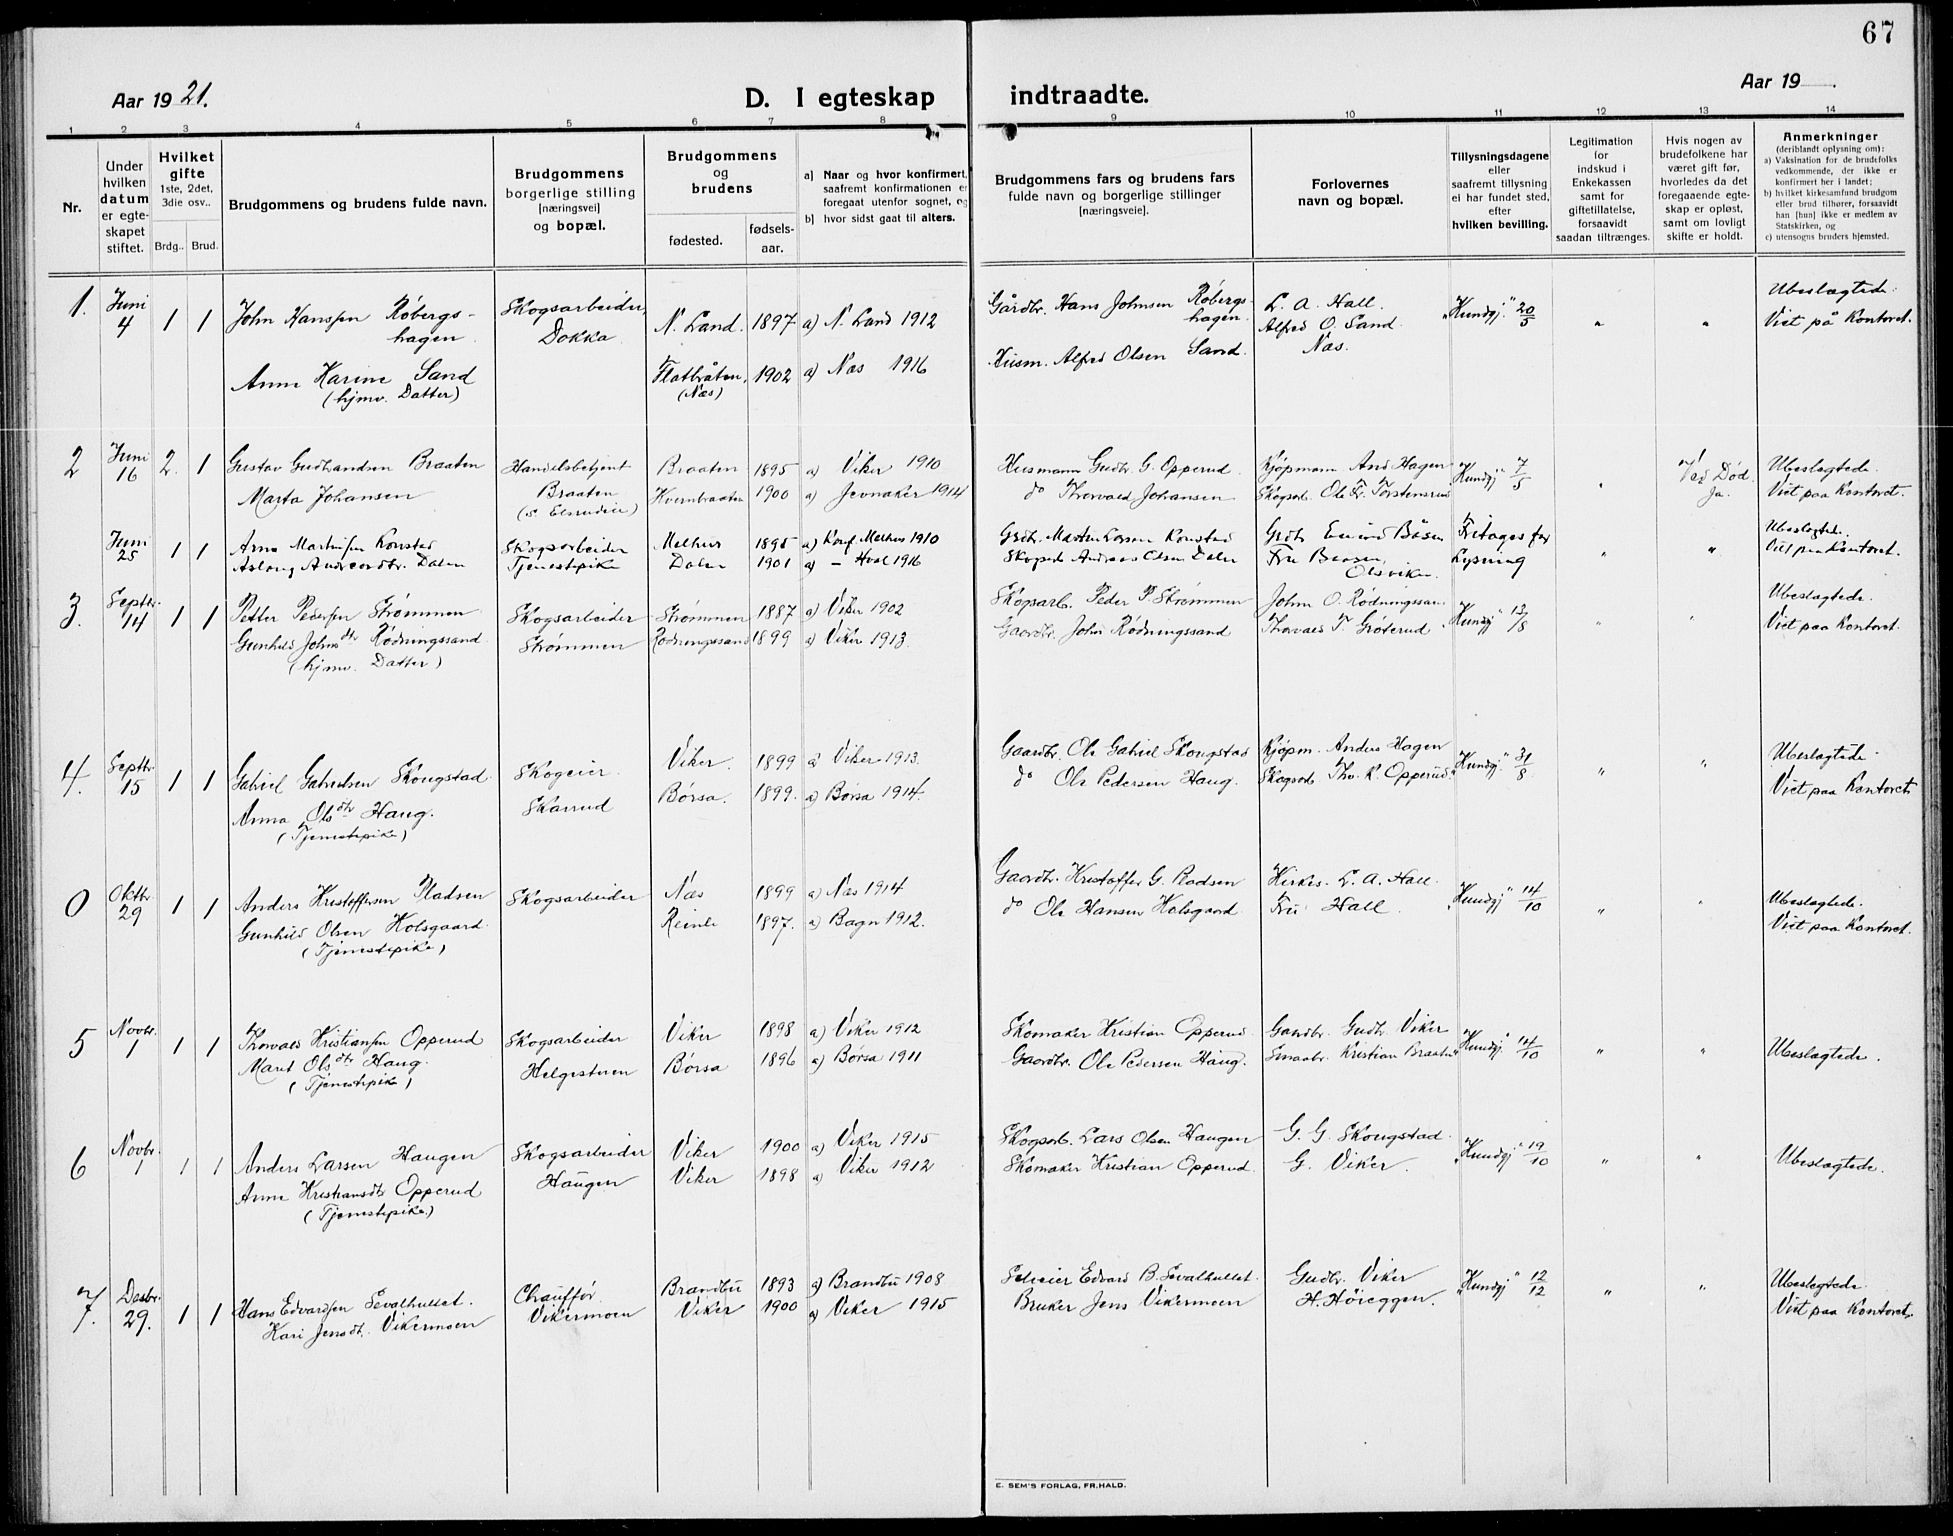 67
Aar 1921.
D. I egteskap indtraadte.
Aar 19 .
1 2 3 4 5 6 7 8 9 10 11 12 13 14
Nr.
Under
hvilken
datum
er egte-
skapet
stiftet.
Hvilket
gifte
1ste, 2det,
3die osv..
Brdg.. Brud.
Brudgommens og brudens fulde navn.
Brudgommens
borgerlige stilling
[næringsvei]
og bopæl.
Brudgommens
og
brudens
fødested.
fødsels-
aar.
a) Naar og hvor konfirmert,
saafremt konfirmationen e
foregaat utenfor sognet, og
b) hvor sidst gaat til alters.
Brudgommens fars og brudens fars
fulde navn og borgerlige stillinger
[næringsveie].
Forlovernes
navn og bopæl.
Tillysningsdagene
eller
saafremt tillysning
ei har fundet sted,
efter
hvilken bevilling.
Legitimation
for
indskud i
Enkekassen
samt for
giftetillatelse,
forsaavidt
saadan tiltrænges.
Hvis nogen av
brudefolkene har
været gift før,
hvorledes da det
foregaaende egte-
skap er opløst,
samt om lovligt
skifte er holdt.
Anmerkninger
(deriblandt oplysning om):
a) Vaksination for de brudefolks
vedkommende, der ikke er
konfirmert her i landet;
b) hvilket kirkesamfund brudgom
eller brud tilhører, forsaavidt
han [hun] ikke er medlem av
Statskirken, og
c) utensogns bruders hjemsted.
1. Juni 4 1 1 John Hanssen Røbergs-
hagen.
Skogsarbeider,
Dokka
N. Land. 1897 a) N. Land 1912
Gårdbr. Hans Johnsen Røbergs-
hagen.
L. A. Hall.
Alfred O. Sand.
Næs.
"Hundgj." 20/5 " "
Ubeslægtede.
Viet på Kontoret.
Anne Karine Sand
(hjmv. Datter)
Flatbråten,
(Næs)
1902 a) Næs 1916
Husm. Alfred Olsen Sand.
2 Juni 16 2. 1 Gustav Gudbrandsen Braaten
Handelsbetjent
Braaten 1895 a) Viker 1910
Husmann Gudbr. G. Opperud.
Kjøpmann And. Hagen
"Hundgj" 7/5 " Ved Død.
Ja.
Ubeslagtede.
Viet paa Kontoret.
Marta Johansen
Braaten
Kvernbraaten 1900 a) Jevnaker 1914
do Thorvald Johansen
Skogsarb. Ole Fr. Torstensrud
Juni 25 1 1 Arne Martinsen Konstad
Skogsarbeider
Melhus 1895 a) Konf. Melhus 1910
Grdbr. Martin Larsen Konstad
Fritages for
Lysning
" "
Ubeslagtede.
Viet paa Kontoret.
Aslaug Andreasdtr. Dalen
Tjenestepike
Dalen 1901 a) — Hval 1916
Skogsarb. Andreas Olsen Dalen
3. Septbr. 14 1 1 Petter Pedersen Strømmen
Skogsarbeider
Strømmen
Strømmen 1887 a) Viker 1902
Skogsarb. Peder P. Strømmen
John O. Rødningssan
"Hundgj" 13/8 " "
Ubeslagtede.
Viet paa Kontoret.
Gunhild Johnsdtr Rødningssand
(hjmv. Datter)
Rødningssand 1899 a) Viker 1913.
Gaardbr. John Rødningssand
Thorvald T. Grøterud
4. Septbr. 15 1 1 Gabriel Gabrielsen Skougstad
Skogeier.
Skarrud
Viker. 1899 a) Viker 1913.
Gaardbr. Ole Gabriel Skougstad
Kjøpm. Anders Hagen
"Hundgj." 31/8 " "
Ubeslagtede.
Viet paa Kontoret.
Anna Olsdtr Haug.
(Tjenestepike)
Børsa. 1899. a) Børsa 1914.
do Ole Pedersen Haug.
Skogsarb. Thv. K. Opperud
0 Oktbr. 29 1 1 Anders Kristoffersen Pladsen
Skogsarbeider
Næs 1899 a) Næs 1914
Gaardbr. Kristoffer G. Pladsen
Kirkes. L. A. Hall.
"Hundgj" 14/10 " "
Ubeslagtede.
Viet paa Kontoret.
Gunhild Olsen Holsgaard.
(Tjenestepike)
Reinli 1897. a) Bagn 1912.
do Ole Hansen Holsgaard.
Fru Hall.
5 Novbr. 1 1 1 Thorvald Kristiansen Opperud
Skogsarbeider
Helgesteren
Viker 1898 a) Viker 1912
Skomaker Kristian Opperud
Gaardbr. Gudbr. Viker
"Hundgj." 14/10 " "
Ubeslagtede.
Marit Olsdtr Haug.
(Tjenestepike)
Børsa 1896 a) Børsa 1911
Gaardbr. Ole Pedersen Haug.
Smaabr. Kristian Braaten
6 Novbr. 1 1 1 Anders Larsen Haugen
Skogsarbeider
Haugen
Viker 1900 a) Viker 1915
Skogsarb. Lars Olsen Haugen
G. G. Skougstad.
"Hundgj" 19/10 " "
Ubeslagtede.
Anne Kristiansdtr Opperud
(Tjenestepike.)
Viker 1898 a) Viker 1912
Skomaker Kristian Opperud.
G. Viker.
7. Desbr. 29. 1 1 Hans Edvardsen Sevalhultet.
Chauffør.
Vikermoen
Brandbu 1893 a) Brandbu 1908
Selveier Edvard B. Sevalhultet.
Gudbr. Viker
"Hundgj" 12/12 " "
Ubeslagtede.
Viet paa Kontoret.
Kari Jensdt. Vikermoen
Viker 1900 a) Viker 1915
Bruker Jens Vikermoen
H. Høieggen.
E. SEM'S FORLAG, FR.HALD.